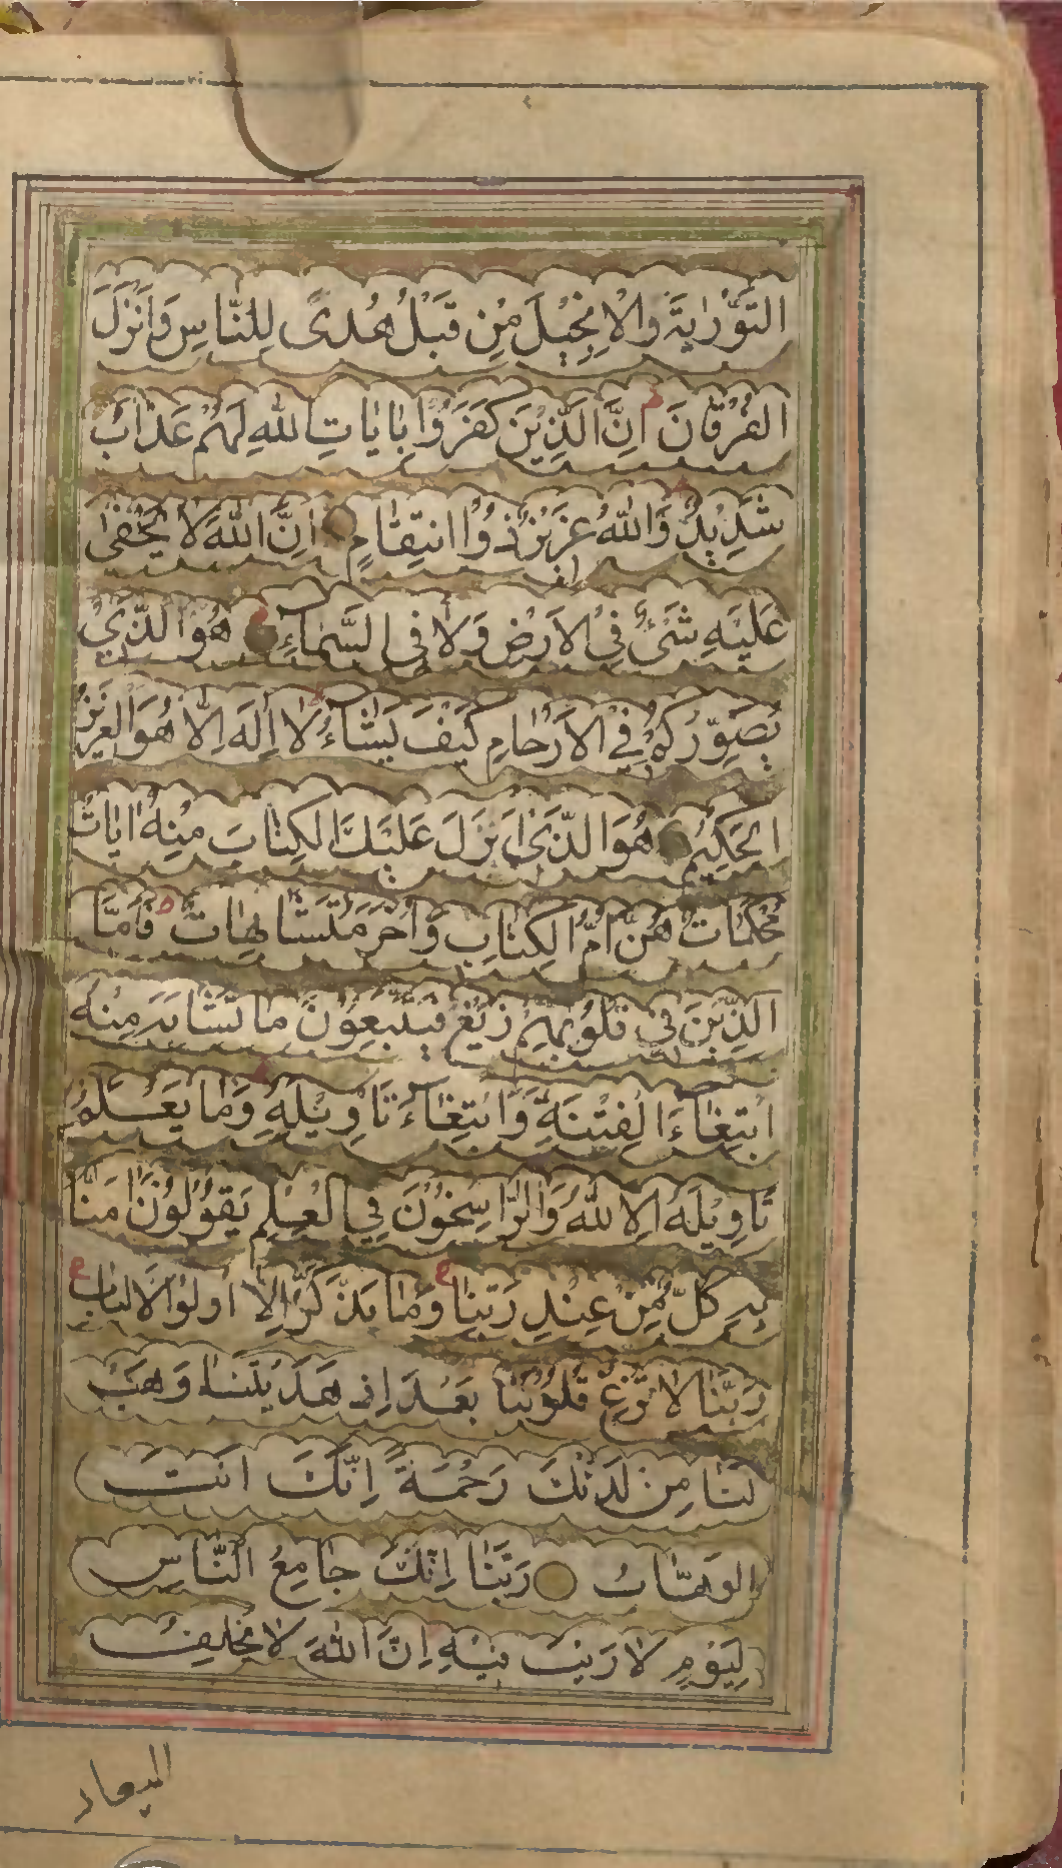 التَّوْرٰيةَ وَالْاِنْجِيْلَ مِنْ قَبْلُ هُدىً لِلنّاسِ وَاَنْزَلَ
الْفُرْقانَ اِنَّ الَّذِيْنَ كَفَرُوْا بِاٰياتِ اللهِ لَهُمْ عَذابٌ
شَدِيْدٌ وَاللهُ عَزِيْزٌ ذُوْا انْتِقامٍ اِنَّ اللهَ لا يَخْفىٰ
عَلَيْهِ شَىْءٌ فِى الْاَرْضِ وَلا فِى السَّمآءِ هُوَ الَّذِيْ
يُصَوِّرُكُمْ فِي الْاَرْحامِ كَيْفَ يَشآءُ لا اِلٰهَ اِلّا هُوَ الْعَزِيْزُ
الْحَكِيْمُ هُوَ الَّذِىْ اَنْزَلَ عَلَيْكَ الْكِتابَ مِنْهُ اٰياتٌ
مُحْكَماتٌ هُنَّ اُمُّ الْكِتابِ وَاُخَرُ مُتَشابِهاتٌ ط فَاَمَّا
الَّذِيْنَ فِىْ قُلُوْبِهِمْ زَيْغٌ فَيَتَّبِعُوْنَ ما تَشابَهَ مِنْهُ
ابْتِغآءَ الْفِتْنَةِ وَابْتِغآءَ تَاْوِيْلِهِ وَما يَعْلَمُ
تَاْوِيْلَهُ اِلَّا اللهُ وَالرّاسِخُوْنَ فِي الْعِلْمِ يَقُوْلُوْنَ اٰمَنّا
بِهِ كُلٌّ مِنْ عِنْدِ رَبِّنا ع وَما يَذَّكَّرُ اِلّا اُولُوا الْاَلْبابِ ع
رَبَّنا لا تُزِغْ قُلُوْبَنا بَعْدَ اِذْ هَدَيْتَنا وَهَبْ
لَنا مِنْ لَدُنْكَ رَحْمَةً اِنَّكَ اَنْتَ
الْوَهّابُ رَبَّنا اِنَّكَ جامِعُ النّاسِ
لِيَوْمٍ لا رَيْبَ فِيْهِ اِنَّ اللهَ لا يُخْلِفُ
الميعاد